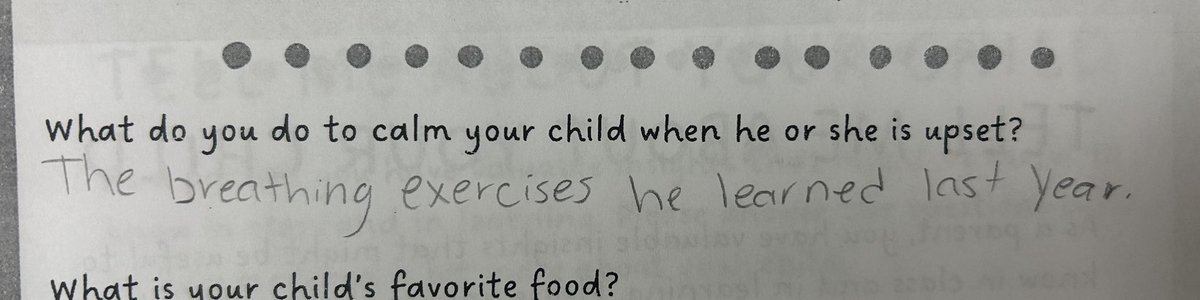 What do you do to calm your child when he or she is upset?
The breathing exercises he learned last year.
What is your child's favorite food?